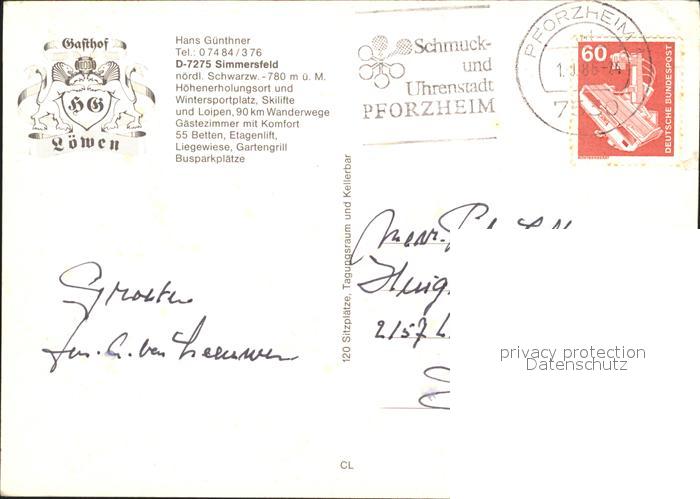 Gasthof
HG
Löwen
Hans Günthner
Tel.: 07484/376
D-7275 Simmersfeld
nördl. Schwarzw. - 780 m ü. M.
Höhenerholungsort und
Wintersportplatz, Skilifte
und Loipen, 90 km Wanderwege
Gästezimmer mit Komfort
55 Betten, Etagenlift,
Liegewiese, Gartengrill
Busparkplätze
120 Sitzplätze, Tagungsraum und Kellerbar
Schmuck-
und
Uhrenstadt
PFORZHEIM
PFORZHEIM
60
DEUTSCHE BUNDESPOST
Groeten
fam. A. van Leeuwen
2157
privacy protection
Datenschutz
CL